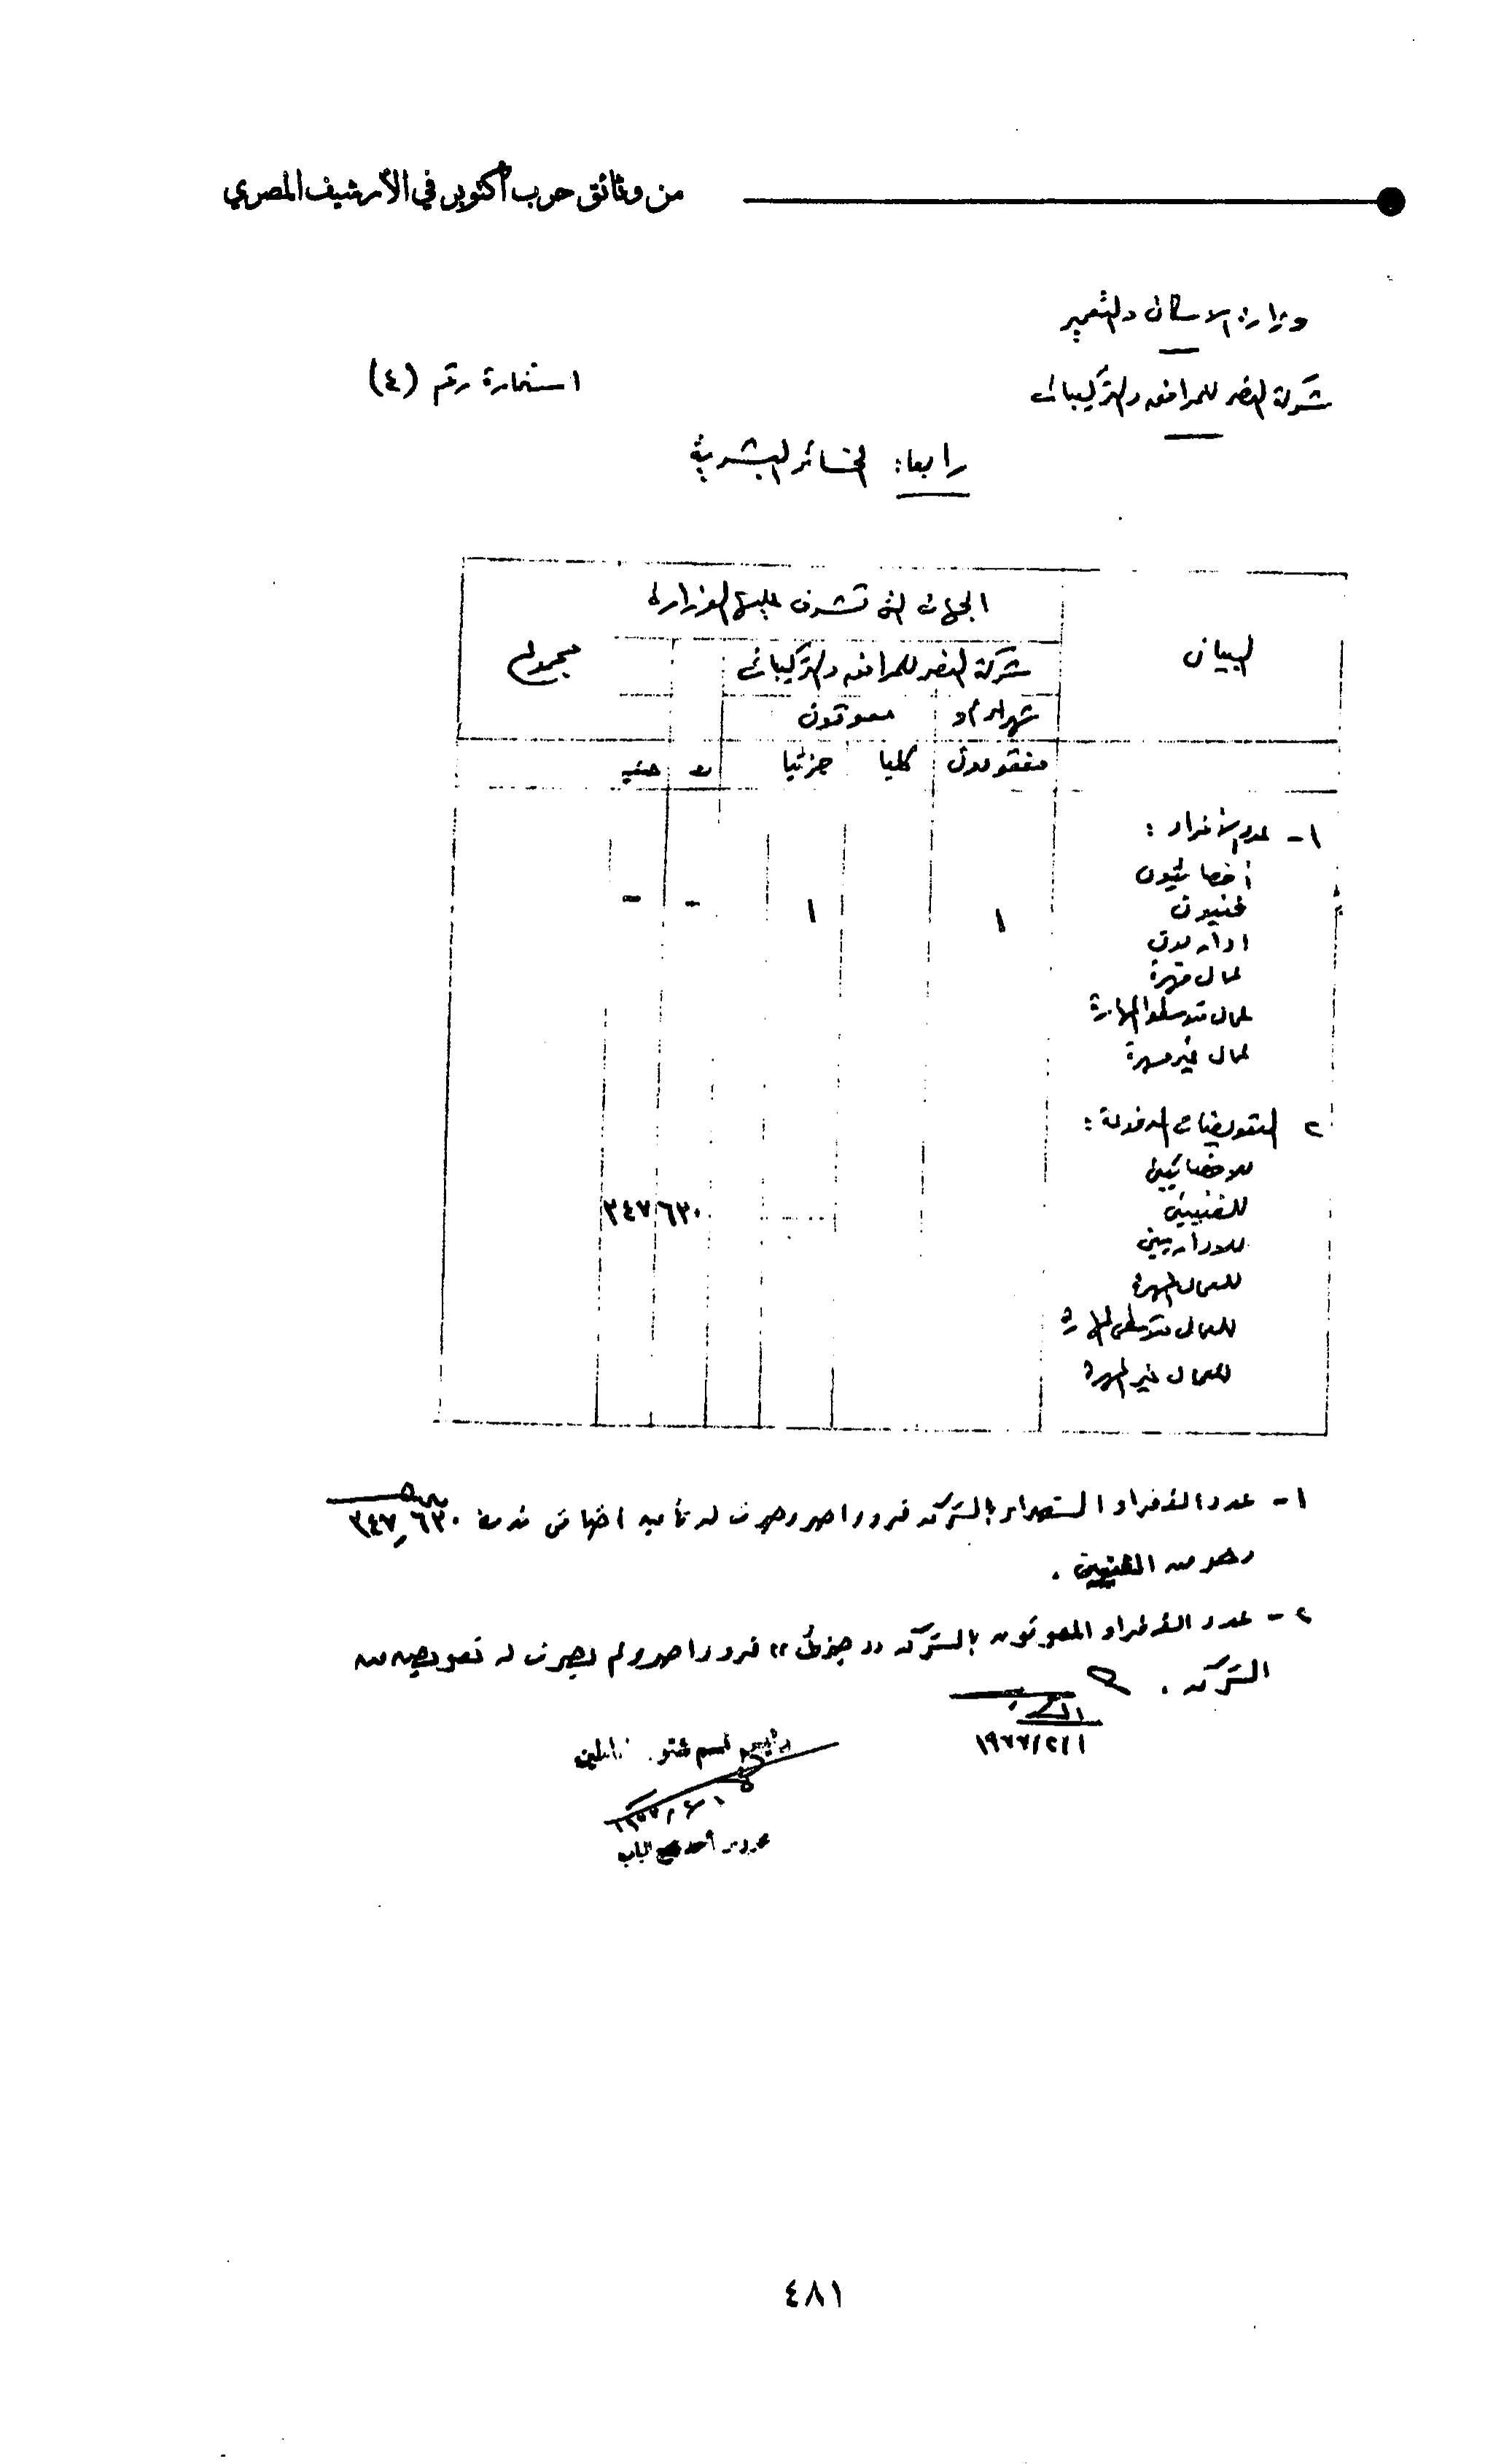 من وثائق حرب أكتوبر في الأرشيف المصري
وزارة الاسكان والتعمير
شركة النصر للمرافق والتركيبات
استمارة رقم (٤)
رابعا: الخسائر البشرية
البيان
الجهات التى تشرف عليها الوزارة
مجموع
شركة النصر للمرافق والتركيبات
شهداء أو معوقون
مفقودون كليا جزئيا جنيه
١- عدد الأفراد :
أخصائيون
فنيون ١ ١ - -
اداريون
عمال مهرة
عمال متوسطو المهارة
عمال غير مهرة
٢ التعويضات المدفوعة :
للاخصائيين
للفنيين ٦٣٠ ٣٤٧
للاداريين
للعمال المهرة
للعمال متوسطى المهارة
للعمال غير المهرة
١- عدد الأفراد المستشهدين بالشركة فرد واحد وصرف له تأمين اضافى قدره ٦٣٠ر٣٤٧
وهو من الفنيين .
٢- عدد الأفراد المعوقون بالشركة "جزئى" فرد واحد ولم يصرف له تعويض من
الشركة .
١٩٧٧/٢/١
رئيس قسم شئون العاملين
أحمد فتح الباب
٤٨١